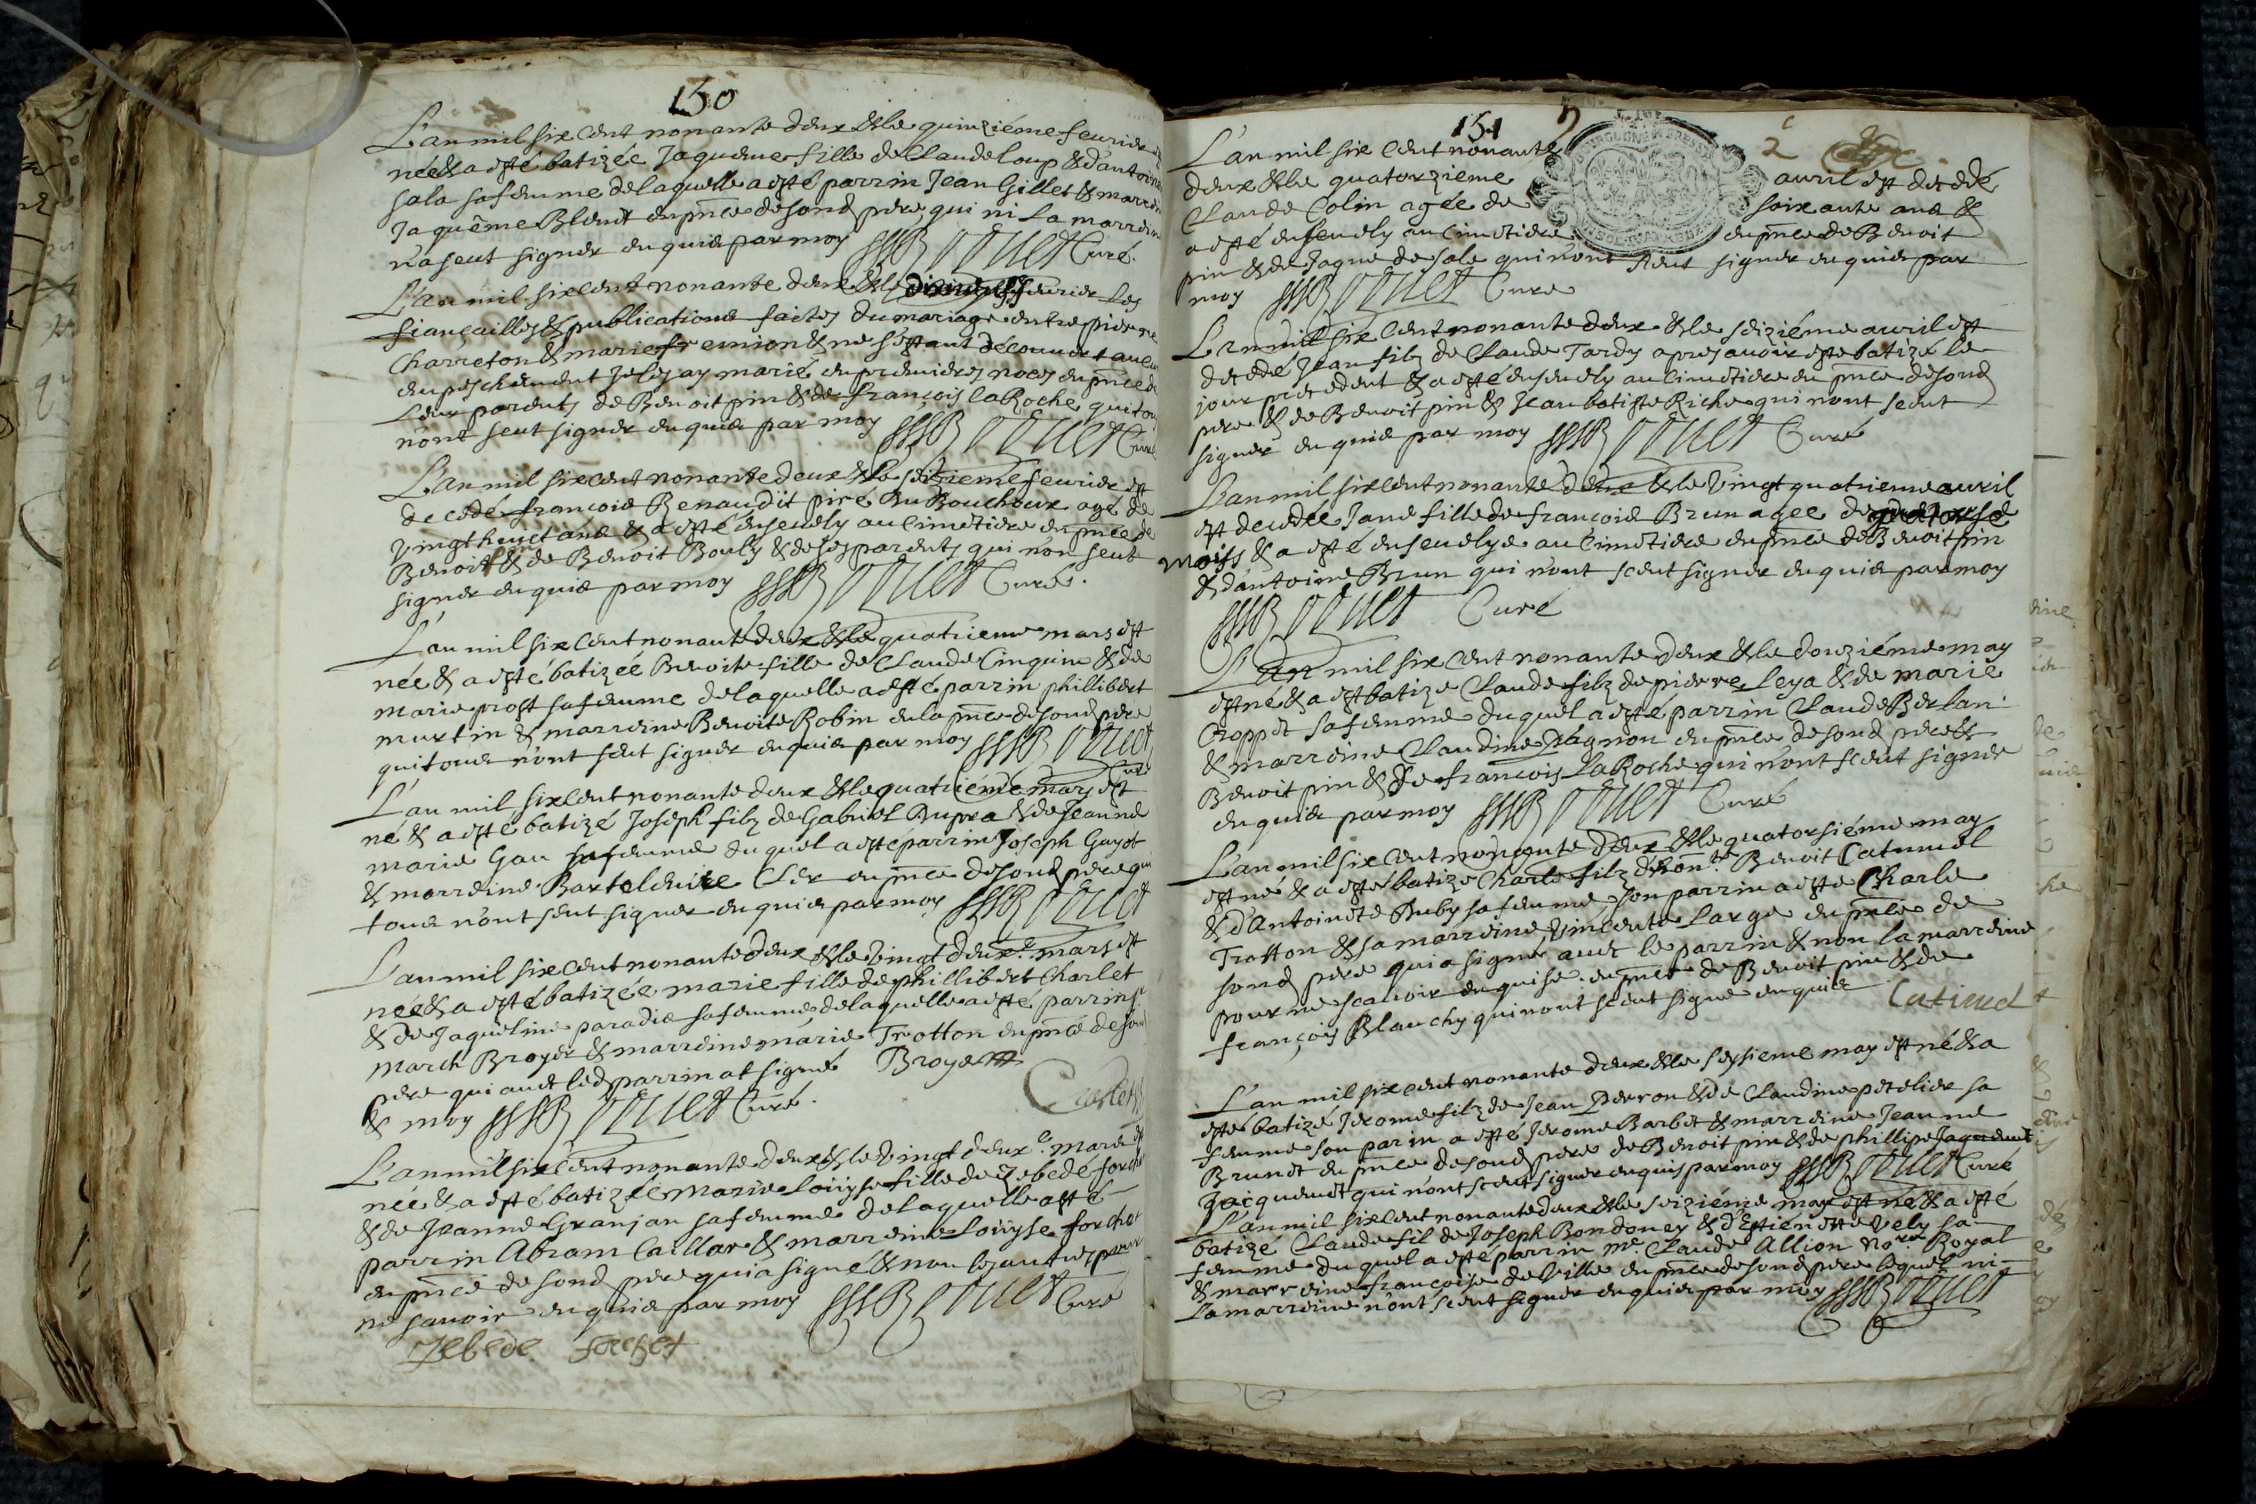 150
L'an mil six cent nonante deux & le quinziéme feurier est
née & a esté batizée Jaqueme fille de Claude Loup & d'antoine
sala sa femme de laquelle a esté parrin Jean Gillet & marrein
Jaquême Blenet en pnce de sond pere qui ni la marreine
n'a seut signer enquis par moy Curé.
L'an mil six cent nonante deux & le feurier Les
fiançailles & publications faites du mariage entre pierre
Charreton & marie fremion & ne s'estant découuert aucun
empeschement Je les ay marié en premieres noces en pnce de
Leur parents de Benoit pin & de françois laRoche qui tous
n'ont seut signer enquis par moy Curé
L'an mil six cent nonante deux & le seizieme feurier est
decedé francois Benaudit piré du Bouchoux agé de
vingt huct ans & a esté enseuely au Cimetiere en pnce de
Benoit pin & de Benoit Bouly & de ses parents qui n'on seut
signer enquis par moy Curé.
L'an mil six cent nonante deux & le quatrieme mars est
née & a esté batizée Benoite fille de Claude Cinquin & de
marie prost sa femme de laquelle a esté parrin phillibert
murtin & marreine Benoite Robin en la pnce de sond pere
qui tous n'ont seut signer enquis par moy
Curé
L'an mil six cent nonante deux & le quatriéme mars est
né & a esté batizé Joseph filz de Gabriel Dupra & de Jeanne
marie Gau sa femme du quel a esté parrin Joseph Guyot
& marreine Bartelemie Cler en pnce de sond pere qui
tous n'ont seut signer enquis par moy
L'an mil six cent nonante deux & le vingt deux.e mars est
née & a esté batizée marie fille de phillibert Charlet
& de Jaqueline paradis sa femme de laquelle a esté parrin
march Broyer & marreine marie Trotton en pnce de sond
pere qui auec led parrin at signé Broyer
& moy Curé.
L'an mil six cent nonante deux & le vingt deux.e mars est
née & a esté batizée Marie Loüyse fille de Zebedé forchet
& de Jeanne Granjan sa femme de laquelle a esté
parrin Abram Caillar & marreine Loüyse forchet
en pnce de sond pere qui a signé & non les autres pour
ne sauoir enquis par moy Curé
Zebede forchet
151
L'an mil six cent nonante
deux & le quatorzieme auril est decedé
Claude Colin agée de soixante ans &
a esté enseuely au Cimetiere en pnce de Benoit
pin & de Jaque de sale qui n'ont seut signer enquis par
moy Curé
L'an mil six cent nonante deux & le seiziéme auril est
decedé Jean filz de Claude Tardy apres auoir esté batizé le
jour precedent & a esté enseuely au Cimetiere en pnce de sond
pere & de Benoit pin & Jean batiste Riche qui n'ont seeut
signer enquis par moy Curé
L'an mil six cent nonante deux & le vingt quatrieme auril
est decedée Jane fille de francois Brun agee de quatorse
moiss & a esté enseuelye au Cimetiere en pnce de Benoit pin
& d'antoine Brun qui n'ont sceut signer enquis par moy
Curé
L'an mil six cent nonante deux & le douziéme may
est né & a est batize Claude filz de pierre Leya & de marie
Croppet sa femme du quel a esté parrin Claude Berlan
& marreine Claudine pagnon en pnce de sond pere &
Benoit pin & de françois LaRoche qui n'ont sceut signer
enquis par moy Curé
L'an mil six cent nonante deux & le quatorsiéme may
est né & a esté batize Charle filz d'hon.te Benoit Catimel
& d'Antoinete Duby sa femme, son parrin a esté Charle
Trotton & sa marreine Vincente Large en pnce de
sond pere qui a signé auec le parrin & non la marreine
pour ne scauoir enquise. en pnce de Benoit pin & de
françois Blanchy qui n'ont sceut signe enquis Catimel
L'an mil six cent nonante deux & le seysieme may est né & a
este batizé Jerome filz de Jean perron & de Claudine petelier sa
femme son parin a esté Jerome Barbet & marreine Jeanne
Brunet en pnce de sond pere de Benoit pin & de phillipe Jaquemet
Jacquemet qui n'ont sceut signer enquis par moy Curé
L'an mil six cent nonante deux & le seiziéme may est né & a esté
batizé Claude fil de Joseph Bondoney & d'Estienette Vely sa
femme du quel a esté parrin me. Claude Allion No.re Royal
& marreine françoise de Ville en pnce de sond pere lequel ni
La marreine n'ont sceut signer enquis par moy